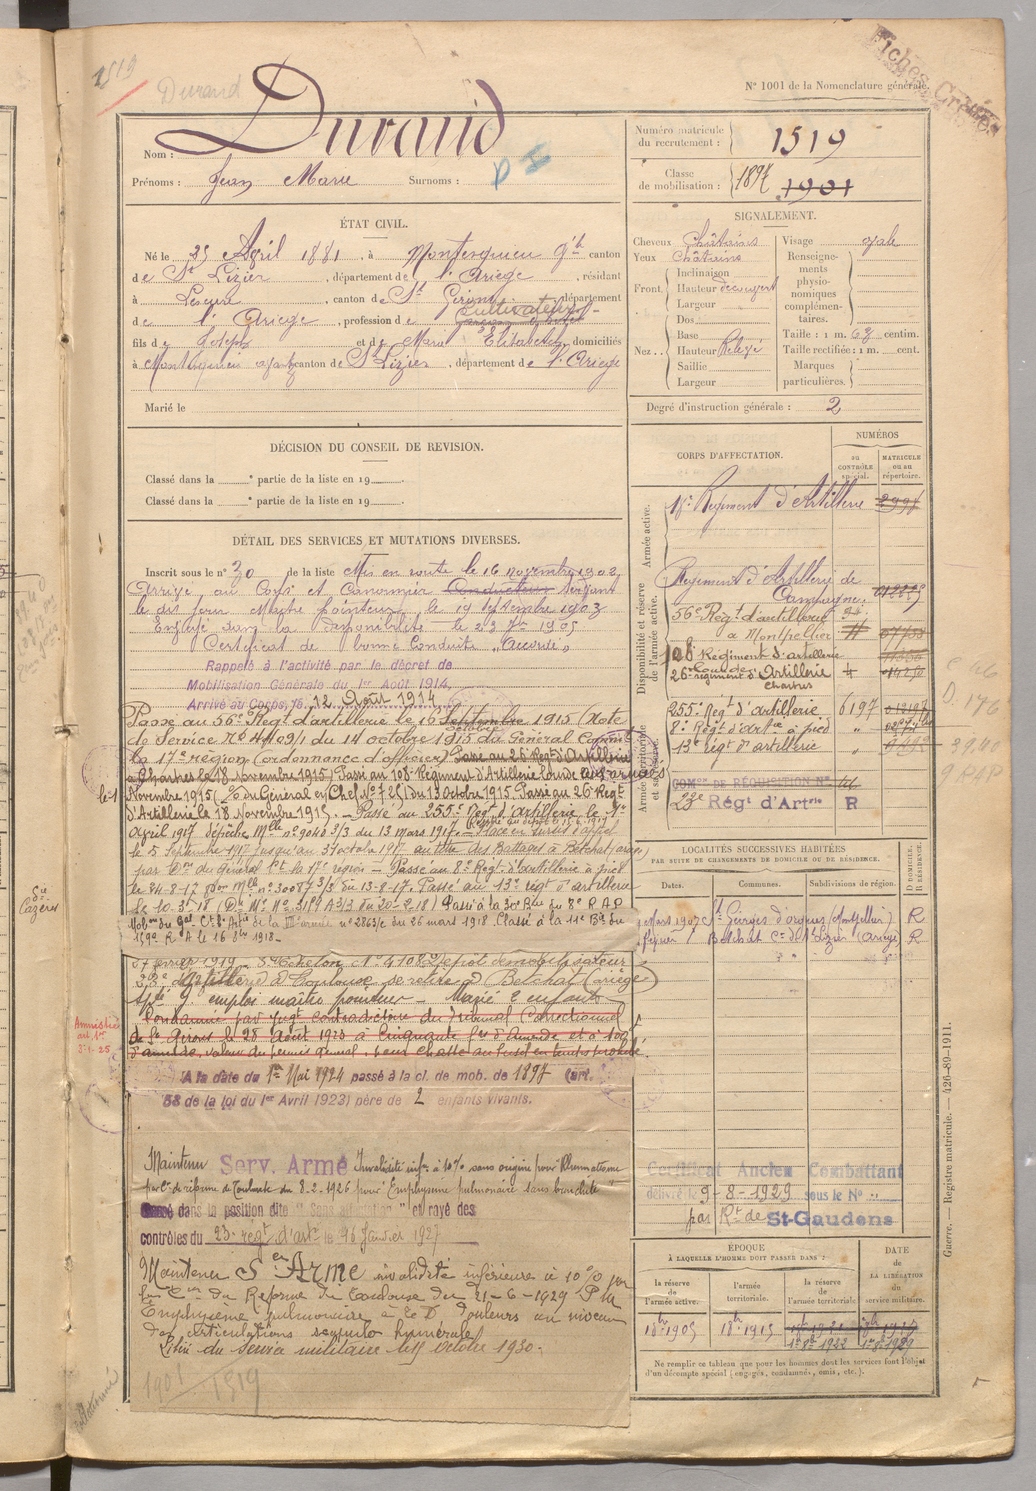 1519
Durand
Fiches Croisées
N° 1001 de la Nomenclature générale.
Nom : Durand
Prénoms : Jean Marie Surnoms :
Numéro matricule du recrutement : 1519
Classe de mobilisation : 1897 1901
ÉTAT CIVIL.
Né le 25 Avril 1881, à Montesquieu canton
de St Lizier, département de l'Ariège, résidant
à Lescure, canton de St Girons, département
de l'Ariège, profession de Cultivateur
fils de Joseph et de Marie Elisabeth domiciliés
à Montesquieu canton de St Lizier, département de l'Ariège
Marié le
SIGNALEMENT.
Cheveux Châtains
Yeux Châtains
Front. Inclinaison
Hauteur découvert
Largeur
Nez... Dos
Base
Hauteur Relevé
Saillie
Largeur
Visage ovale
Renseignements physionomiques complémentaires.
Taille : 1 m. 63 centim.
Taille rectifiée : 1 m. cent.
Marques particulières.
Degré d'instruction générale : 2
DÉCISION DU CONSEIL DE REVISION.
Classé dans la e partie de la liste en 19 .
Classé dans la e partie de la liste en 19 .
DÉTAIL DES SERVICES ET MUTATIONS DIVERSES.
Inscrit sous le n° 30 de la liste Mis en route le 16 novembre 1902
Arrivé au Corps et Canonnier Conducteur Servant
le dit jour Maître pointeur le 19 septembre 1903
Envoyé dans la disponibilité le 23 7bre 1905
Certificat de bonne Conduite "Accordé"
Rappelé à l'activité par le décret de
Mobilisation Générale du 1er Août 1914.
Arrivé au Corps, le 12 Août 1914
Passé au 56e Régt d'artillerie le 16 Septembre octobre 1915 (Note
de Service N° 4409/1 du 14 octobre 1915 du Général Commt
la 17e région (ordonnance d'officier) Passé au 26e Régt d'Artillerie
à Chartres le 18 Novembre 1915) Passé au 108e Régiment d'Artillerie lourde aux armées
le 1
Novembre 1915 (du Général en Chef N° 725) du 13 Octobre 1915 Passé au 26e Régt
d'Artillerie le 18 Novembre 1915. — Passé au 255e Régt d'artillerie le 1er
avril 1917 dépêche Mlle n° 9048 3/3 du 13 mars 1917. — Placé en sursis d'appel
le 5 Septembre 1917 jusqu'au 31 octobre 1917 au titre des Battages à Betchat (ariège)
par du général Ct la 17e région — Passé au 8e Régt d'artillerie à pied
le 24-8-17 Mlle n° 30087 3/3 du 13-8-17. Passé au 13e régt d'artillerie
le 10-3-18 Passé à la 30e Bie du 8e R A P
n° 2863/c du 26 mars 1918 Classé à la 11e Bie du
159e R A le 16 1918-
27 février 1919 échelon N° 4108 dépôt démobilisateur
d'artillerie à Toulouse se retire à Betchat (ariège)
emploi maître pointeur — Marié 2 enfants
Condamné par jugt contradictoire du Tribunal Correctionnel
de St Girons le 28 Août 1923 à Cinquante frs d'amende et à 100f
d'amende, valeur du permis général, pour Chasse au fusil en temps prohibé.
Amnistié art. 1er 3-1-25
A la date du 1er Mai 1924 passé à la cl. de mob. de 1897 (art.
58 de la loi du 1er Avril 1923) père de 2 enfants vivants.
Maintenu Serv. Armé Invalidité inf. à 10% sans origine pour Rhumatisme
par C. de réforme de Toulouse du 8-2-1926 pour Emphysème pulmonaire sans bronchite
Classé dans la position dite "Sans affectation" et rayé des
contrôles du 23e régt d'art le 26 Janvier 1927
Maintenu S en Armé invalidité inférieure à 10% par
la Con de Réforme de Toulouse du 21-6-1929
Emphysème pulmonaire douleurs au niveau
des articulations scapulo humérale
Libéré du service militaire le 15 octobre 1930.
1901 1519
CORPS D'AFFECTATION.
NUMÉROS
au contrôle spécial.
matricule ou au répertoire.
Armée active.
18e Régiment d'Artillerie
Disponibilité et réserve de l'armée active.
Régiment d'Artillerie de Campagne
56e Régt d'artillerie à Montpellier
108e Régiment d'artillerie lourde
26e régiment d'Artillerie Chartres
Armée territoriale et sa réserve.
255e Régt d'artillerie 6197
8e Régt d'Artie à pied "
13e régt d'artillerie "
COMON DE RÉQUISITION N°
23e Régt d'Artrie R
LOCALITÉS SUCCESSIVES HABITÉES
PAR SUITE DE CHANGEMENTS DE DOMICILE OU DE RÉSIDENCE.
Dates. Communes. Subdivisions de région. D domicile. R résidence.
Mars 1907 St Georges d'orques (Montpellier) R
Betchat Con de St Lizier (Ariège) R
Certificat Ancien Combattant
délivré le 9-8-1929 sous le N°
par Rt de St-Gaudens
ÉPOQUE
À LAQUELLE L'HOMME DOIT PASSER DANS :
la réserve de l'armée active.
l'armée territoriale.
la réserve de l'armée territoriale
DATE DE LA LIBÉRATION du service militaire.
1er 8bre 1905
1er 8bre 1915
1er 8bre 1922
Ne remplir ce tableau que pour les hommes dont les services font l'objet
d'un décompte spécial (engagés, condamnés, omis, etc.).
Guerre. — Registre matricule. — 426-89-1911.